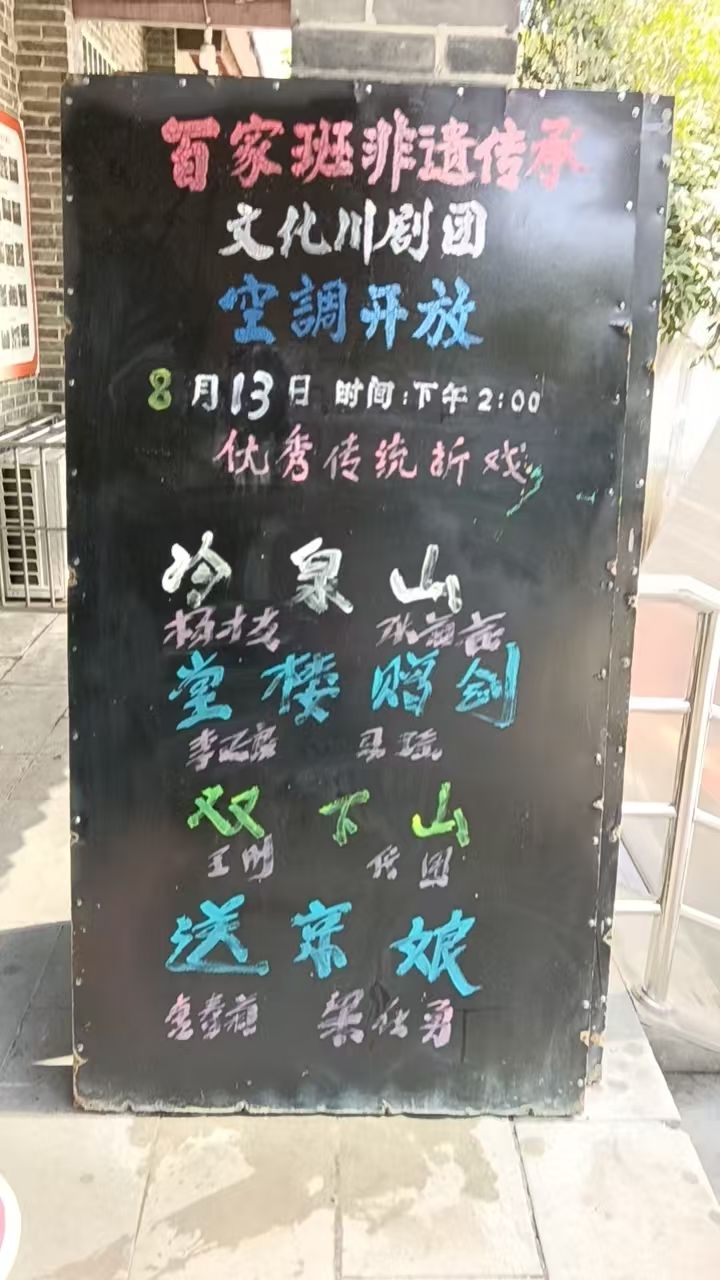 百家班非遗传承
文化川剧团
空調开放
8月13日 时间:下午2:00
优秀传统折戏
冷泉山
堂楼赠剑
马
双下山
王刚
送京娘
梁化勇